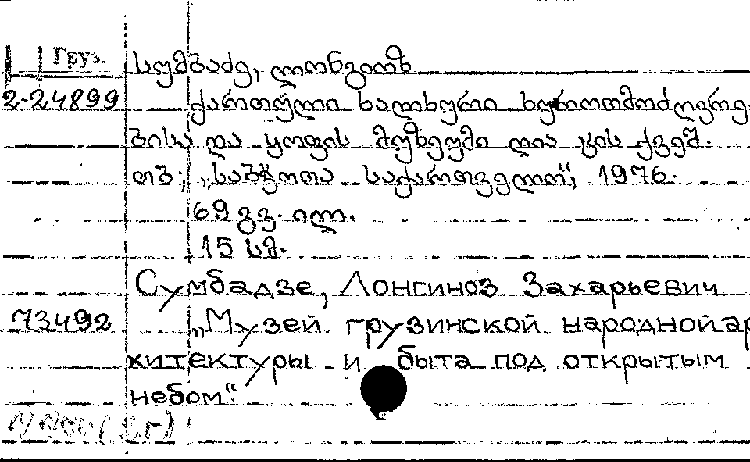 Груз. სუმბაძე, ლონგინოზ
2-24899 ქართული ხალხური ხუროთმოძღვრე-
ბისა და ყოფის მუზეუმი ღია ცის ქვეშ.
თბ., „საბჭოთა საქართველო“, 1976.
69 გვ. ილ.
15 სმ.
Сумбадзе, Лонгиноз Захарьевич
73492 „Музей грузинской народной ар
хитектуры и быта под открытым
небом“.